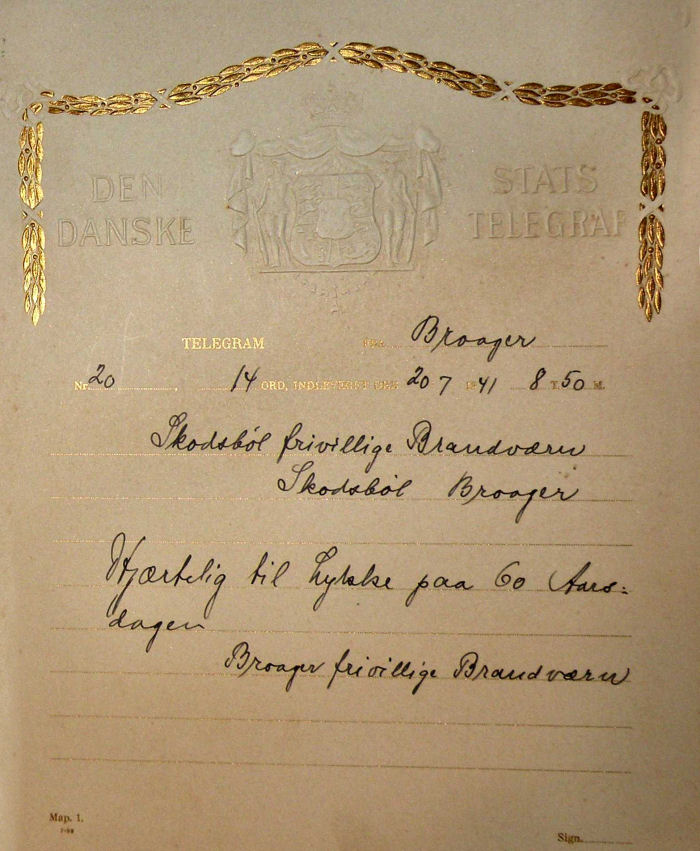 DEN DANSKE STATS TELEGRAF
TELEGRAM FRA Broager
Nr. 20, 14 ORD, INDLEVERET DEN 20 7 1941 8 T. 50 M.
Skodsbøl frivillige Brandværn
Skodsbøl Broager
Hjærtelig til Lykke paa 60 Aars-
dagen
Broager frivillige Brandværn
Map. 1.
Sign.